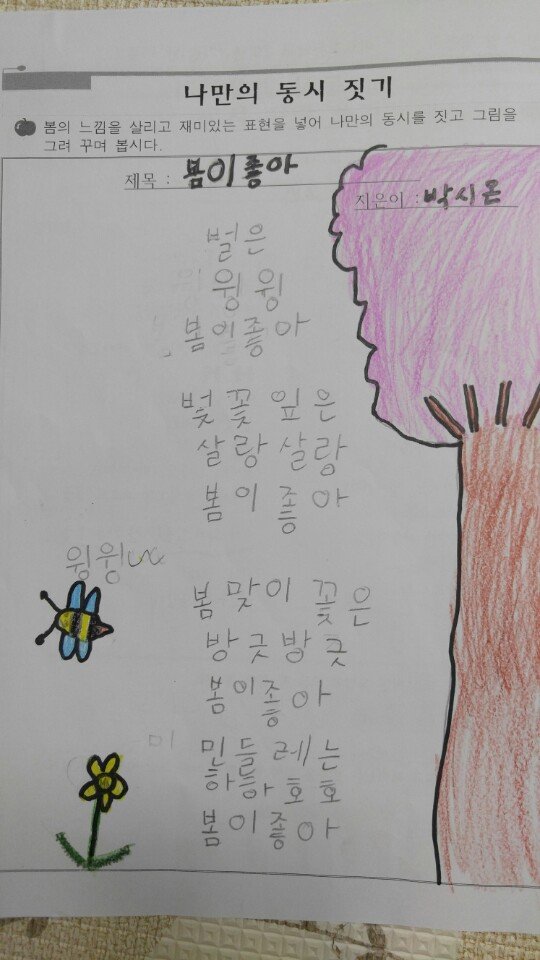 나만의 동시 짓기
봄의 느낌을 살리고 재미있는 표현을 넣어 나만의 동시를 짓고 그림을
그려 꾸며 봅시다.
제목 : 봄이좋아
지은이 : 박시온
벌은
윙윙
봄이좋아
벚꽃잎은
살랑살랑
봄이좋아
윙윙~
봄맞이 꽃은
방긋방긋
봄이좋아
미
민들레는
하하호호
봄이좋아